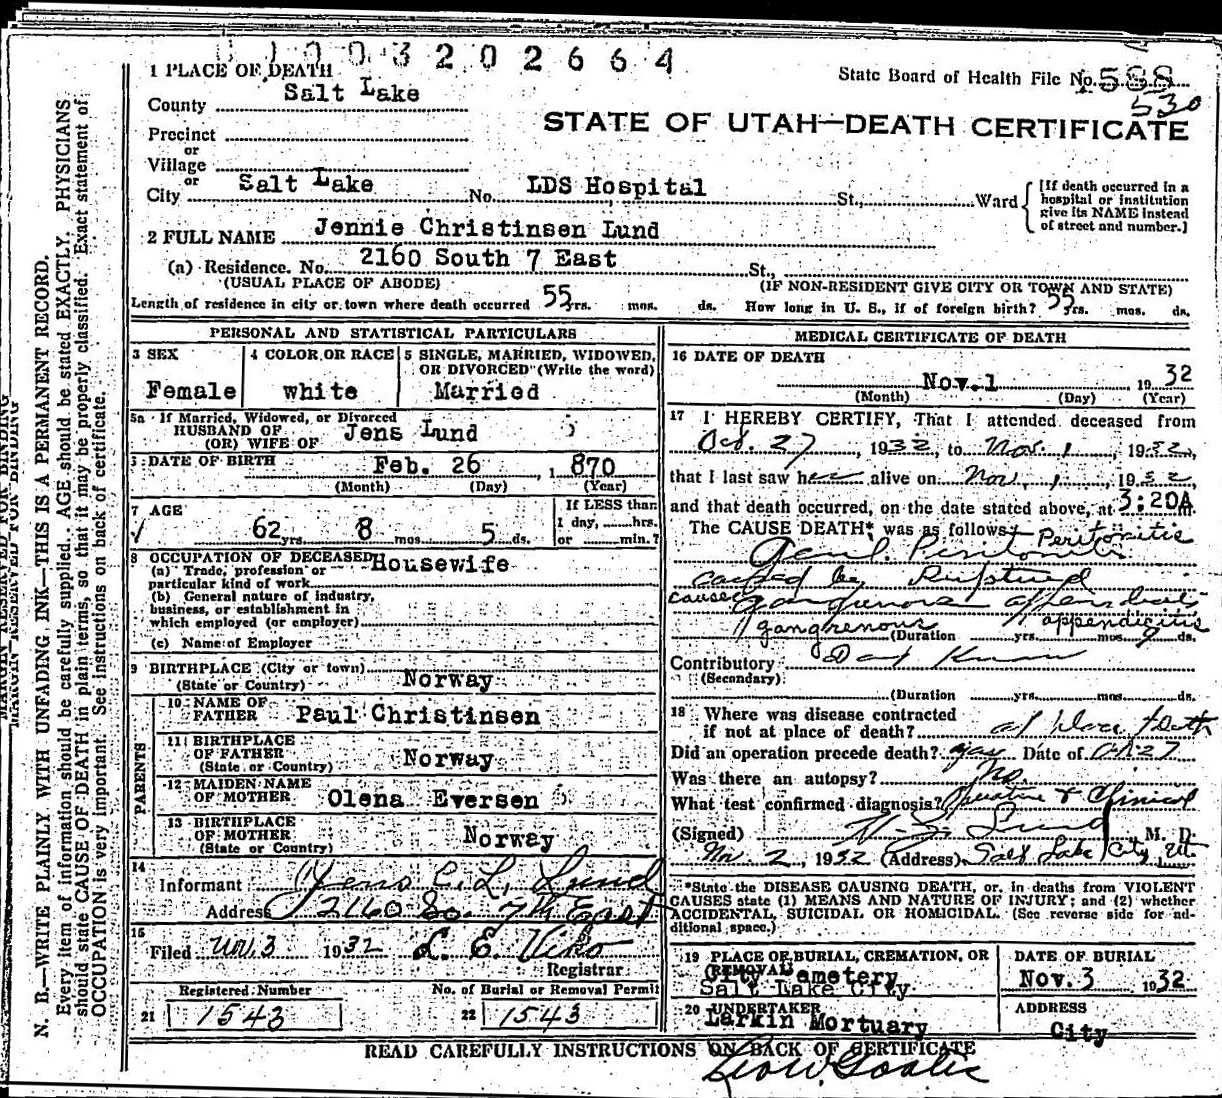 1003202664
1 PLACE OF DEATH
State Board of Health File No. 588
530
County Salt Lake
STATE OF UTAH—DEATH CERTIFICATE
Precinct
or
Village
or
City Salt Lake No. LDS Hospital St., Ward
[If death occurred in a hospital or institution give its NAME instead of street and number.]
2 FULL NAME Jennie Christinsen Lund
(a) Residence. No. 2160 South 7 East St.,
(USUAL PLACE OF ABODE) (IF NON-RESIDENT GIVE CITY OR TOWN AND STATE)
Length of residence in city or town where death occurred 55 yrs. mos. ds. How long in U. S., if of foreign birth? 55 yrs. mos. ds.
PERSONAL AND STATISTICAL PARTICULARS
3 SEX
Female
4 COLOR OR RACE
white
5 SINGLE, MARRIED, WIDOWED, OR DIVORCED (Write the word)
Married
5a If Married, Widowed, or Divorced
HUSBAND OF
(OR) WIFE OF Jens Lund
DATE OF BIRTH Feb. 26 1870
(Month) (Day) (Year)
7 AGE
62 yrs. 8 mos. 5 ds.
If LESS than
1 day, hrs.
or min.?
8 OCCUPATION OF DECEASED
(a) Trade, profession or particular kind of work Housewife
(b) General nature of industry,
business, or establishment in
which employed (or employer)
(c) Name of Employer
9 BIRTHPLACE (City or town)
(State or Country) Norway
PARENTS
10 NAME OF FATHER Paul Christinsen
11 BIRTHPLACE OF FATHER
(State or Country) Norway
12 MAIDEN NAME OF MOTHER Olena Eversen
13 BIRTHPLACE OF MOTHER
(State or Country) Norway
14
Informant Jens C. L. Lund
Address 2160 So. 7th East
15
Filed Nov. 3 1932 L. E. Viko
Registrar
Registered Number No. of Burial or Removal Permit
21 1543 22 1543
MEDICAL CERTIFICATE OF DEATH
16 DATE OF DEATH
Nov. 1 1932
(Month) (Day) (Year)
17 I HEREBY CERTIFY, That I attended deceased from
Oct. 27, 1932, to Nov. 1, 1932,
that I last saw her alive on Nov. 1, 1932,
and that death occurred, on the date stated above, at 3:20A m.
The CAUSE DEATH* was as follows:
Peritonitis
Genl. Peritonitis
caused by Ruptured
caused gangrenous appendicitis
gangrenous appendicitis
(Duration yrs. mos. 9 ds.
Contributory Don't Know
(Secondary)
(Duration yrs. mos. ds.
18 Where was disease contracted
if not at place of death? at place death
Did an operation precede death? yes Date of Oct 27
Was there an autopsy? No.
What test confirmed diagnosis? Operative & Clinical
(Signed) Lund M. D.
Nov. 2, 1932 (Address) Salt Lake City, Ut
*State the DISEASE CAUSING DEATH, or, in deaths from VIOLENT
CAUSES state (1) MEANS AND NATURE OF INJURY; and (2) whether
ACCIDENTAL, SUICIDAL OR HOMICIDAL. (See reverse side for additional space.)
19 PLACE OF BURIAL, CREMATION, OR REMOVAL
City Cemetery
Salt Lake City
DATE OF BURIAL
Nov. 3 1932
20 UNDERTAKER
Larkin Mortuary
ADDRESS
City
READ CAREFULLY INSTRUCTIONS ON BACK OF CERTIFICATE
MARGIN RESERVED FOR BINDING
N. B.—WRITE PLAINLY WITH UNFADING INK—THIS IS A PERMANENT RECORD.
Every item of information should be carefully supplied. AGE should be stated EXACTLY. PHYSICIANS
should state CAUSE OF DEATH in plain terms, so that it may be properly classified. Exact statement of
OCCUPATION is very important. See instructions on back of certificate.